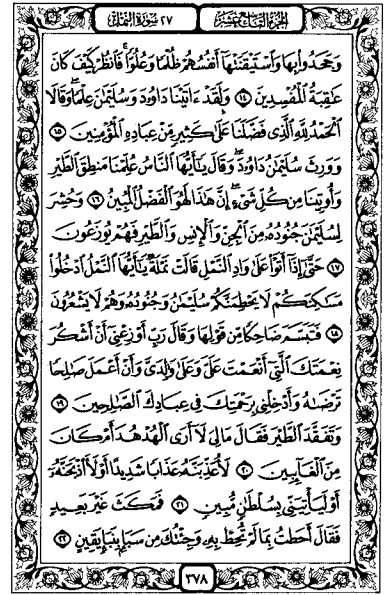 الجزء التاسع عشر
٢٧ سورة النمل
وَجَحَدُواْ بِهَا وَٱسْتَيْقَنَتْهَآ أَنفُسُهُمْ ظُلْمًا وَعُلُوًّا ۚ فَٱنظُرْ كَيْفَ كَانَ
عَٰقِبَةُ ٱلْمُفْسِدِينَ ١٤ وَلَقَدْ ءَاتَيْنَا دَاوُۥدَ وَسُلَيْمَٰنَ عِلْمًا ۖ وَقَالَا
ٱلْحَمْدُ لِلَّهِ ٱلَّذِى فَضَّلَنَا عَلَىٰ كَثِيرٍ مِّنْ عِبَادِهِ ٱلْمُؤْمِنِينَ ١٥
وَوَرِثَ سُلَيْمَٰنُ دَاوُۥدَ ۖ وَقَالَ يَٰٓأَيُّهَا ٱلنَّاسُ عُلِّمْنَا مَنطِقَ ٱلطَّيْرِ
وَأُوتِينَا مِن كُلِّ شَىْءٍ ۖ إِنَّ هَٰذَا لَهُوَ ٱلْفَضْلُ ٱلْمُبِينُ ١٦ وَحُشِرَ
لِسُلَيْمَٰنَ جُنُودُهُۥ مِنَ ٱلْجِنِّ وَٱلْإِنسِ وَٱلطَّيْرِ فَهُمْ يُوزَعُونَ
١٧ حَتَّىٰٓ إِذَآ أَتَوْاْ عَلَىٰ وَادِ ٱلنَّمْلِ قَالَتْ نَمْلَةٌ يَٰٓأَيُّهَا ٱلنَّمْلُ ٱدْخُلُواْ
مَسَٰكِنَكُمْ لَا يَحْطِمَنَّكُمْ سُلَيْمَٰنُ وَجُنُودُهُۥ وَهُمْ لَا يَشْعُرُونَ
١٨ فَتَبَسَّمَ ضَاحِكًا مِّن قَوْلِهَا وَقَالَ رَبِّ أَوْزِعْنِىٓ أَنْ أَشْكُرَ
نِعْمَتَكَ ٱلَّتِىٓ أَنْعَمْتَ عَلَىَّ وَعَلَىٰ وَٰلِدَىَّ وَأَنْ أَعْمَلَ صَٰلِحًا
تَرْضَىٰهُ وَأَدْخِلْنِى بِرَحْمَتِكَ فِى عِبَادِكَ ٱلصَّٰلِحِينَ ١٩
وَتَفَقَّدَ ٱلطَّيْرَ فَقَالَ مَالِىَ لَآ أَرَى ٱلْهُدْهُدَ أَمْ كَانَ
مِنَ ٱلْغَآئِبِينَ ٢٠ لَأُعَذِّبَنَّهُۥ عَذَابًا شَدِيدًا أَوْ لَأَاْذْبَحَنَّهُۥٓ
أَوْ لَيَأْتِيَنِّى بِسُلْطَٰنٍ مُّبِينٍ ٢١ فَمَكَثَ غَيْرَ بَعِيدٍ
فَقَالَ أَحَطتُ بِمَا لَمْ تُحِطْ بِهِۦ وَجِئْتُكَ مِن سَبَإٍۭ بِنَبَإٍ يَقِينٍ ٢٢
٣٧٨